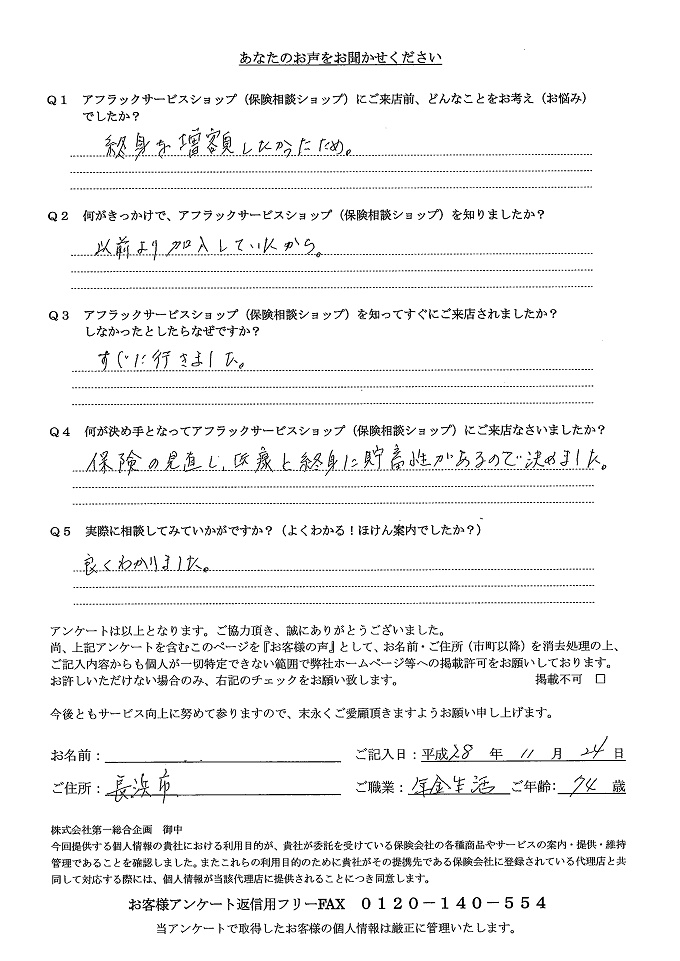 あなたのお声をお聞かせください
Q1 アフラックサービスショップ（保険相談ショップ）にご来店前、どんなことをお考え（お悩み）
でしたか？
終身を増額したかったため。
Q2 何がきっかけで、アフラックサービスショップ（保険相談ショップ）を知りましたか？
以前より加入していたから。
Q3 アフラックサービスショップ（保険相談ショップ）を知ってすぐにご来店されましたか？
しなかったとしたらなぜですか？
すぐに行きました。
Q4 何が決め手となってアフラックサービスショップ（保険相談ショップ）にご来店なさいましたか？
保険の見直し、医療と終身に貯蓄性があるので決めました。
Q5 実際に相談してみていかがですか？（よくわかる！ほけん案内でしたか？）
良くわかりました。
アンケートは以上となります。ご協力頂き、誠にありがとうございました。
尚、上記アンケートを含むこのページを『お客様の声』として、お名前・ご住所（市町以降）を消去処理の上、
ご記入内容からも個人が一切特定できない範囲で弊社ホームページ等への掲載許可をお願いしております。
お許しいただけない場合のみ、右記のチェックをお願い致します。 掲載不可 □
今後ともサービス向上に努めて参りますので、末永くご愛顧頂きますようお願い申し上げます。
お名前： ご記入日：平成28年11月24日
ご住所：長浜市 ご職業：年金生活 ご年齢：74歳
株式会社第一総合企画 御中
今回提供する個人情報の貴社における利用目的が、貴社が委託を受けている保険会社の各種商品やサービスの案内・提供・維持
管理であることを確認しました。またこれらの利用目的のために貴社がその提携先である保険会社に登録されている代理店と共
同して対応する際には、個人情報が当該代理店に提供されることにつき同意します。
お客様アンケート返信用フリーFAX 0120－140－554
当アンケートで取得したお客様の個人情報は厳正に管理いたします。